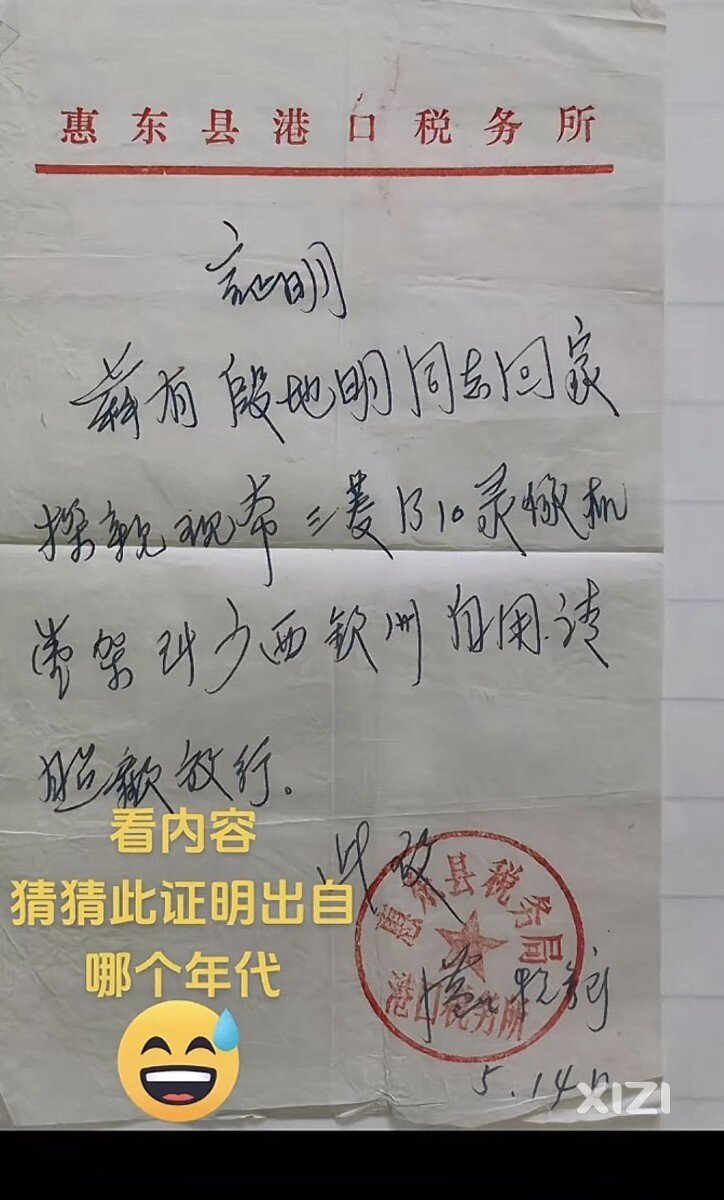 惠东县港口税务所
証明
兹有段地明同志回家
探亲现带三菱B10录像机
壹架到广西钦州自用.请
验放行。
此致
惠东县税务局
港口税务所
5.14日
看内容
猜猜此证明出自
哪个年代
XIZI